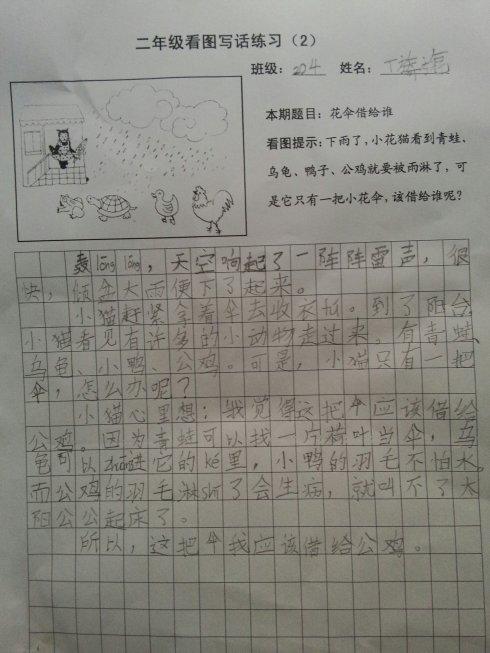 二年级看图写话练习（2）
班级：204 姓名：丁
本期题目：花伞借给谁
看图提示：下雨了，小花猫看到青蛙、
乌龟、鸭子、公鸡就要被雨淋了，可
是它只有一把小花伞，该借给谁呢？
轰lōng lōng，天空响起了一阵阵雷声，很
快，倾盆大雨便下了起来。
小猫赶紧拿着伞去收衣怈。到了阳台，
小猫看见有许多的小动物走过来。有青蛙、
乌龟、小鸭、公鸡。可是，小猫只有一把
伞，怎么办呢？
小猫心里想：我觉得这把伞应该借给
公鸡。因为青蛙可以找一片荷叶当伞，乌
龟可以zhuān进它的ké里，小鸭的羽毛不怕水，
而公鸡的羽毛淋shī了会生病，就叫不了太
阳公公起床了。
所以，这把伞我应该借给公鸡。